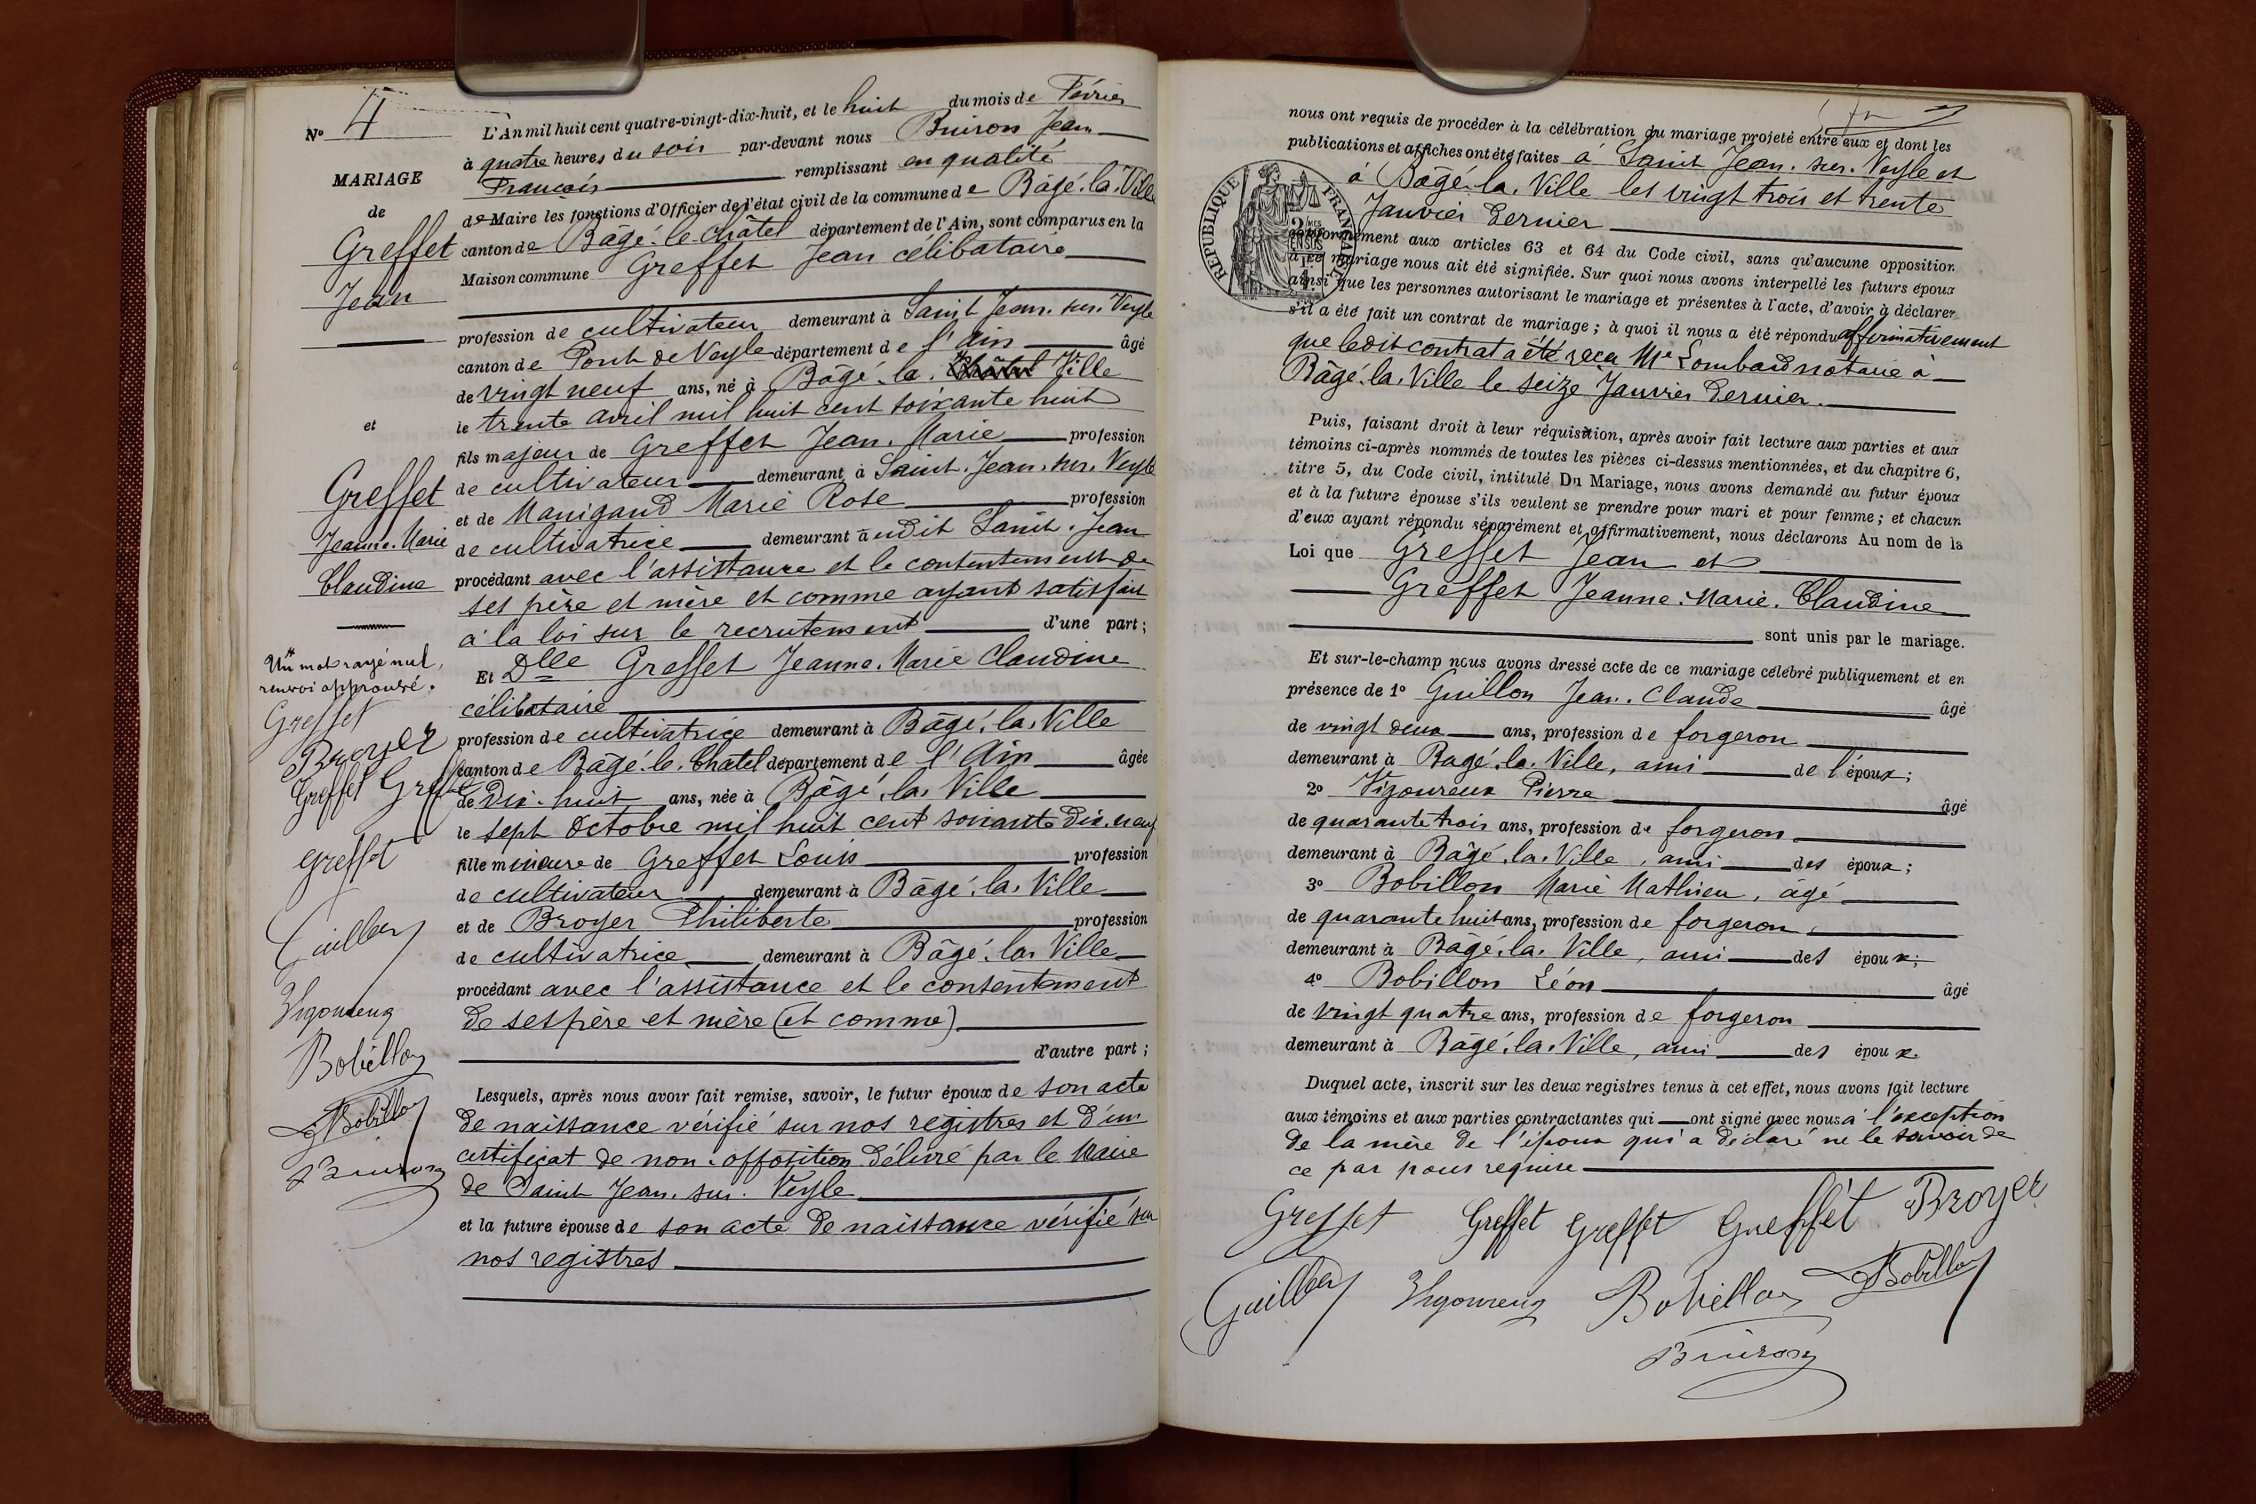 Nº 4
MARIAGE
de
Greffet
Jean
et
Greffet
Jeanne-Marie
Claudine
Un mot rayé nul,
renvoi approuvé.
Greffet
Broyer
Greffet Greffet
Greffet
Guillon
Vigoureux
Bobillon
Bobillon
Buiron
L'An mil huit cent quatre-vingt-dix-huit, et le huit du mois de Février
à quatre heures du soir par-devant nous Buiron Jean
François remplissant en qualité
de Maire les fonctions d'Officier de l'état civil de la commune de Bâgé-la-Ville
canton de Bâgé-le-Châtel département de l'Ain, sont comparus en la
Maison commune Greffet Jean célibataire
profession de cultivateur demeurant à Saint Jean-sur-Veyle
canton de Pont de Veyle département de l'Ain âgé
de vingt neuf ans, né à Bâgé-la-Châtel Ville
le trente avril mil huit cent soixante huit
fils majeur de Greffet Jean-Marie profession
de cultivateur demeurant à Saint-Jean-sur-Veyle
et de Manigand Marie Rose profession
de cultivatrice demeurant audit Saint-Jean
procédant avec l'assistance et le contentement de
ses père et mère et comme ayant satisfait
à la loi sur le recrutement d'une part;
Et Dlle Greffet Jeanne-Marie Claudine
célibataire
profession de cultivatrice demeurant à Bâgé-la-Ville
canton de Bâgé-le-Châtel département de l'Ain âgée
de dix-huit ans, née à Bâgé-la-Ville
le sept octobre mil huit cent soixante dix-neuf
fille mineure de Greffet Louis profession
de cultivateur demeurant à Bâgé-la-Ville
et de Broyer Philiberte profession
de cultivatrice demeurant à Bâgé-la-Ville
procédant avec l'assistance et le consentement
de ses père et mère (et comme)
d'autre part;
Lesquels, après nous avoir fait remise, savoir, le futur époux de son acte
de naissance vérifié sur nos registres et d'un
certificat de non-opposition délivré par le Maire
de Saint Jean-sur-Veyle
et la future épouse de son acte de naissance vérifié sur
nos registres
nous ont requis de procéder à la célébration du mariage projeté entre eux et dont les
publications et affiches ont été faites à Saint Jean-sur-Veyle et
à Bâgé-la-Ville les vingt trois et trente
Janvier dernier
RÉPUBLIQUE FRANÇAISE
conformément aux articles 63 et 64 du Code civil, sans qu'aucune opposition
à ce mariage nous ait été signifiée. Sur quoi nous avons interpellé les futurs époux
ainsi que les personnes autorisant le mariage et présentes à l'acte, d'avoir à déclarer
s'il a été fait un contrat de mariage; à quoi il nous a été répondu affirmativement
que ledit contrat a été reçu Me Lombard notaire à
Bâgé-la-Ville le seize Janvier dernier.
Puis, faisant droit à leur réquisition, après avoir fait lecture aux parties et aux
témoins ci-après nommés de toutes les pièces ci-dessus mentionnées, et du chapitre 6,
titre 5, du Code civil, intitulé Du Mariage, nous avons demandé au futur époux
et à la future épouse s'ils veulent se prendre pour mari et pour femme; et chacun
d'eux ayant répondu séparément et affirmativement, nous déclarons Au nom de la
Loi que Greffet Jean et
Greffet Jeanne-Marie-Claudine
sont unis par le mariage.
Et sur-le-champ nous avons dressé acte de ce mariage célébré publiquement et en
présence de 1º Guillon Jean-Claude âgé
de vingt deux ans, profession de forgeron
demeurant à Bagé-la-Ville, ami de l'époux;
2º Vigoureux Pierre âgé
de quarante trois ans, profession de forgeron
demeurant à Bâgé-la-Ville, ami des époux;
3º Bobillon Marie Mathieu, âgé
de quarante huit ans, profession de forgeron,
demeurant à Bagé-la-Ville, ami des époux;
4º Bobillon Léon âgé
de vingt quatre ans, profession de forgeron
demeurant à Bâgé-la-Ville, ami des époux.
Duquel acte, inscrit sur les deux registres tenus à cet effet, nous avons fait lecture
aux témoins et aux parties contractantes qui ont signé avec nous à l'exception
de la mère de l'époux qui a déclaré ne le savoir de
ce par nous requise
Greffet Greffet Greffet Greffet Broyer
Guillon Vigoureux Bobillon Bobillon
Buiron